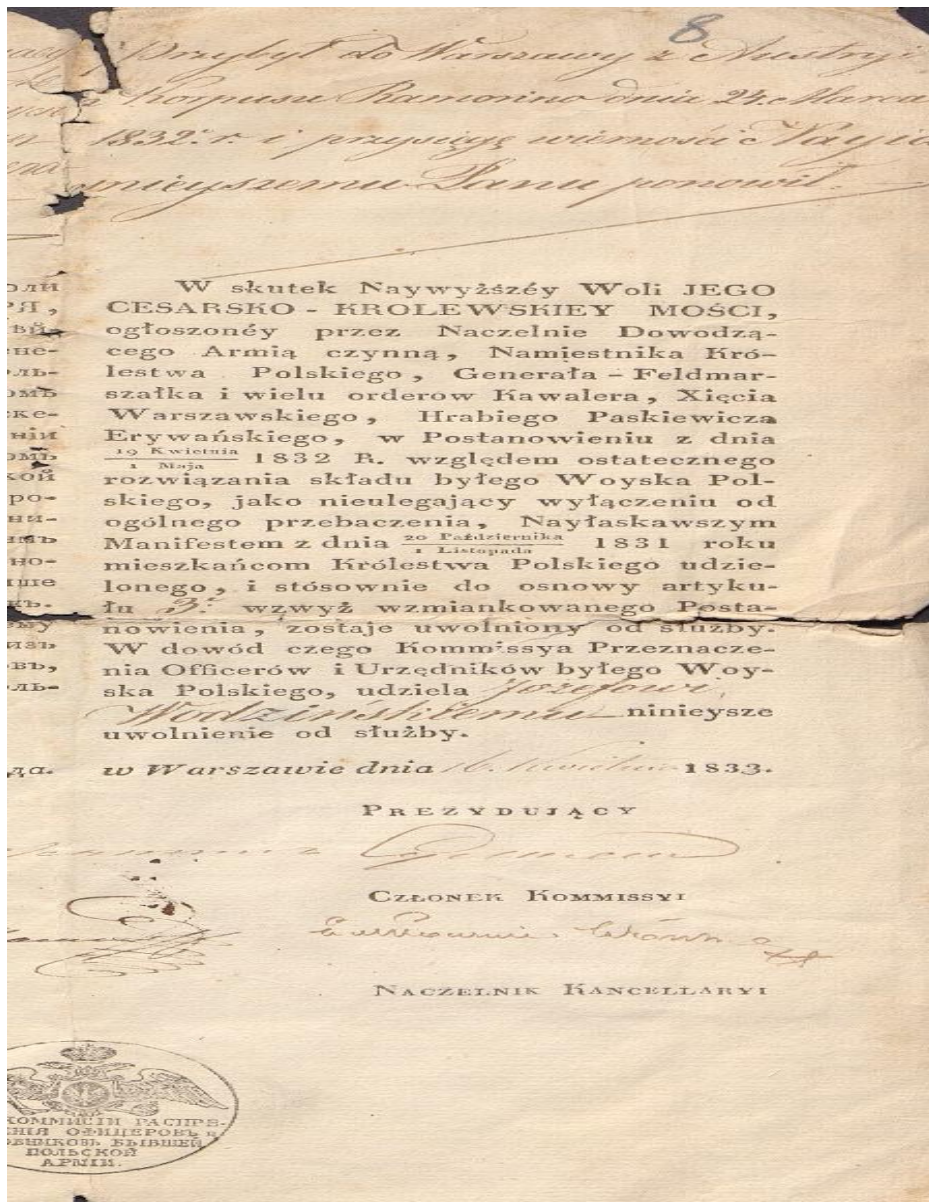 8
Przybył do Warszawy z Austryi
Korpusu Ramorino dnia 24. Marca
1832. r. i przysięgę wierności Nayia
snieyszemu Panu ponowił.
W skutek Naywyższéy Woli JEGO
CESARSKO - KROLEWSKIEY MOŚCI,
ogłoszonéy przez Naczelnie Dowodzą-
cego Armią czynną, Namiestnika Kró-
lestwa Polskiego, Generała - Feldmar-
szałka i wielu orderow Kawalera, Xięcia
Warszawskiego, Hrabiego Paskiewicza
Erywańskiego, w Postanowieniu z dnia
19 Kwietnia / 1 Maja 1832 R. względem ostatecznego
rozwiązania składu byłego Woyska Pol-
skiego, jako nieulegający wyłączeniu od
ogólnego przebaczenia, Nayłaskawszym
Manifestem z dnia 20 Października / 1 Listopada 1831 roku
mieszkańcom Królestwa Polskiego udzie-
lonego, i stósownie do osnowy artyku-
łu 3. wzwyż wzmiankowanego Posta-
nowienia, zostaje uwolniony od służby.
W dowód czego Kommissya Przeznacze-
nia Officerów i Urzędników byłego Woy-
ska Polskiego, udziela Jozefowi
Wodzińskiemu ninieysze
uwolnienie od służby.
w Warszawie dnia 16. Kwietnia 1833.
PREZYDUJĄCY
CZŁONEK KOMMISSYI
NACZELNIK KANCELLARYI
КОММИСІИ РАСПРЕ-
НІЯ ОФИЦЕРОВЪ и
ОВНИКОВЪ БЫВШЕЙ
ПОЛЬСКОЙ
АРМІИ.